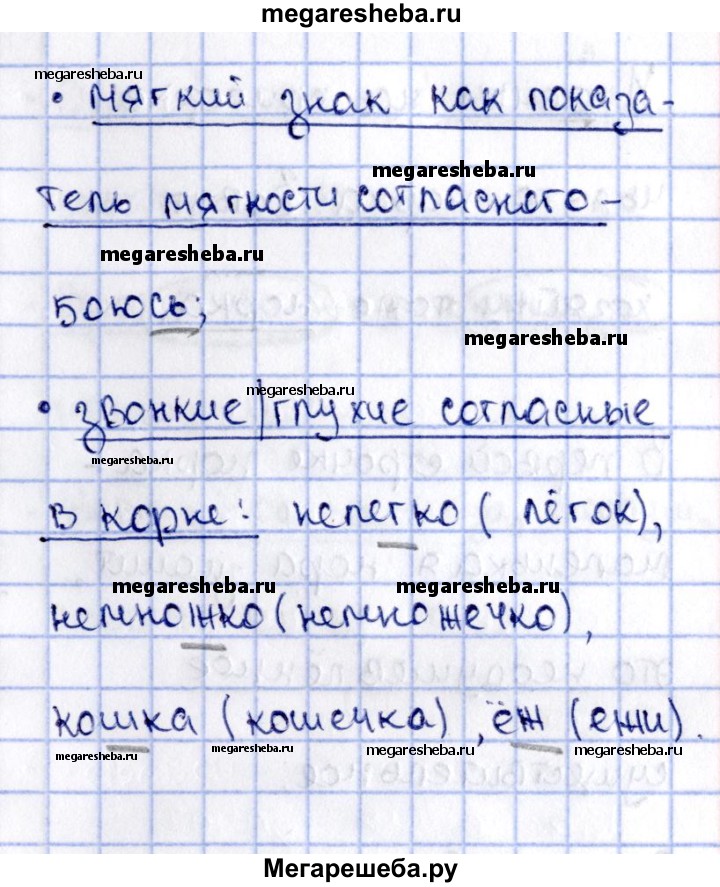 megaresheba.ru
megaresheba.ru
• мягкий знак как показа-
megaresheba.ru
тель мягкости согласного –
megaresheba.ru
боюсь;
megaresheba.ru
megaresheba.ru
• звонкие|глухие согласные
megaresheba.ru
в корне: нелегко (лёгок),
megaresheba.ru megaresheba.ru
немножко (немножечко),
кошка (кошечка), ёж (ежи).
megaresheba.ru megaresheba.ru megaresheba.ru megaresheba.ru
Мегарешеба.ру